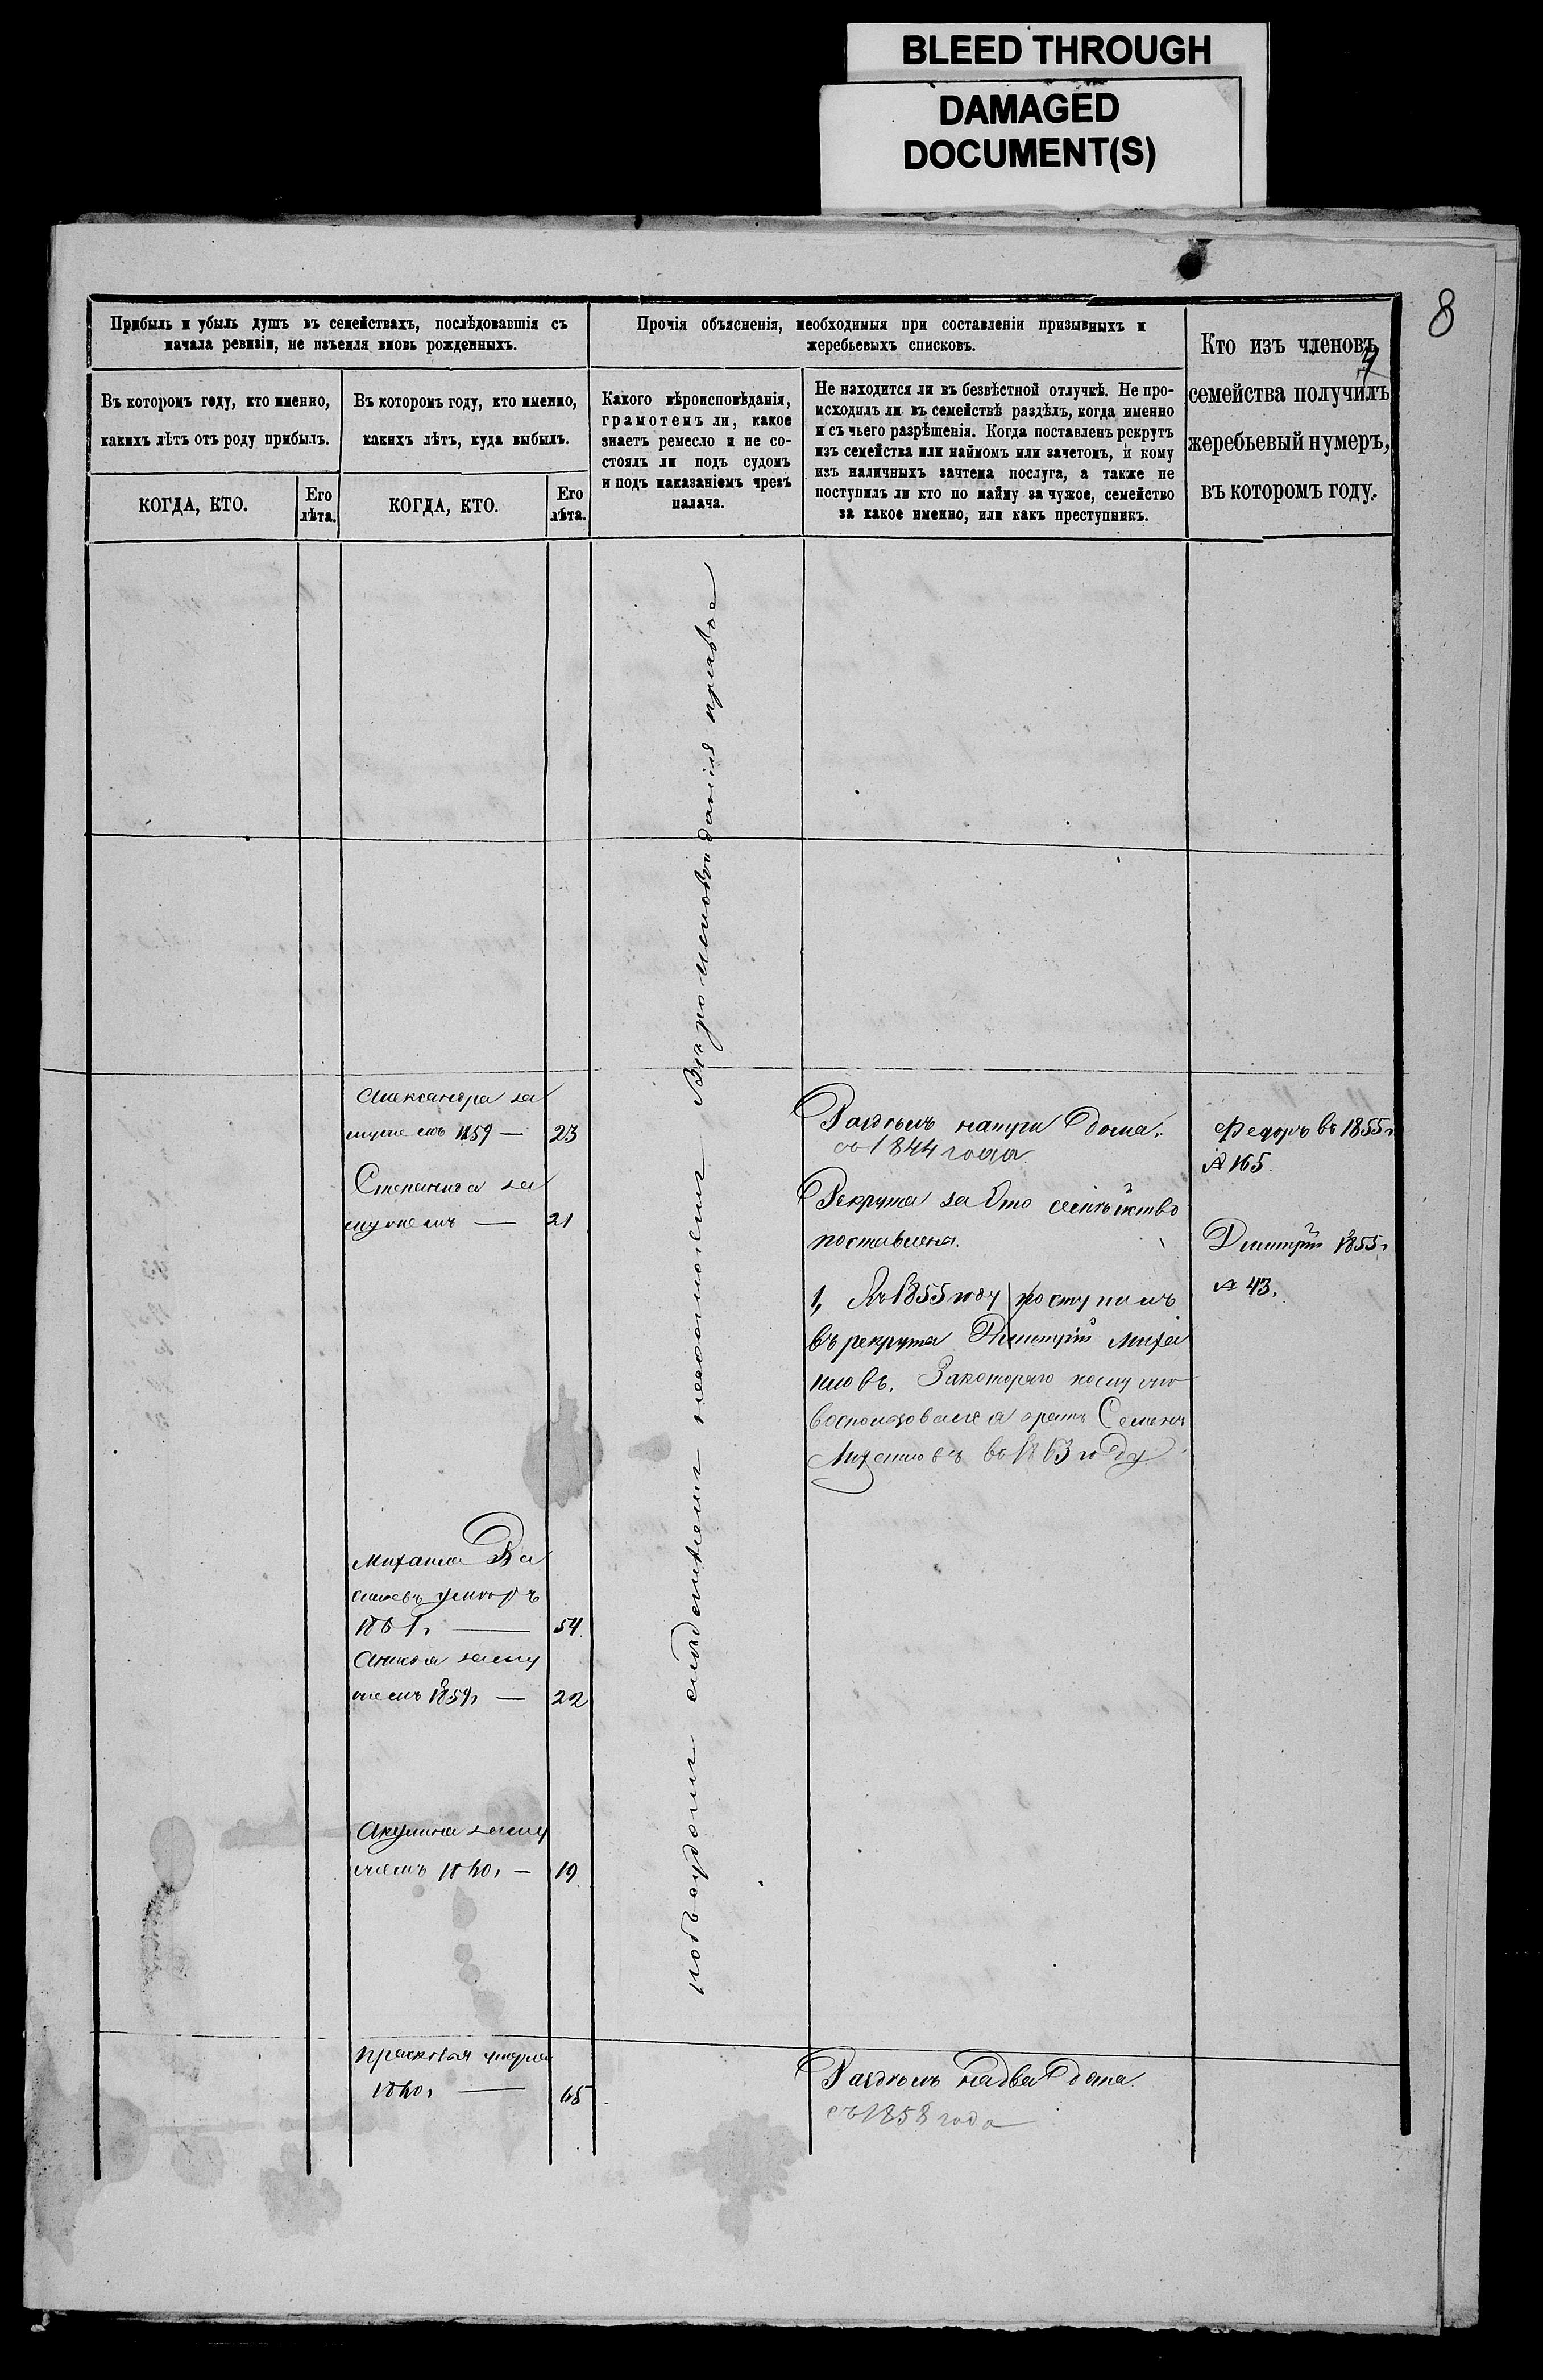 BLEED THROUGH
DAMAGED
DOCUMENT(S)
8
Прибыль и убыль душъ въ семействахъ, послѣдовавшія съ
начала ревизіи, не изъемля вновь рожденныхъ.
Въ которомъ году, кто именно,
какихъ лѣтъ отъ роду прибылъ.
КОГДА, КТО.
Его
лѣта.
Въ которомъ году, кто именно,
какихъ лѣтъ, куда выбылъ.
КОГДА, КТО.
Его
лѣта.
Прочія объясненія, необходимыя при составленіи призывныхъ и
жеребьевыхъ списковъ.
Какого вѣроисповѣданія,
грамотенъ ли, какое
знаетъ ремесло и не со-
стоялъ ли подъ судомъ
и подъ наказаніемъ чрезъ
палача.
Не находится ли въ безвѣстной отлучкѣ. Не про-
исходилъ ли въ семействѣ раздѣлъ, когда именно
и съ чьего разрѣшенія. Когда поставленъ рекрутъ
изъ семейства или наймомъ или зачетомъ, и кому
изъ наличныхъ зачтена послуга, а также не
поступилъ ли кто по найму за чужое, семейство
за какое именно, или какъ преступникъ.
Кто изъ членовъ
семейства получилъ
жеребьевый нумеръ,
въ которомъ году.
Александра за
мужемъ 1859 — 23
Степанида за
мужемъ — 21
Михаила Ва
сильевъ умеръ
186 г. — 54
Анисья заму
жемъ 1859 г — 22
Акулина заму
жемъ 1860 г — 19
Прасковья умерла
1860 г — 65
Вѣроисповѣданія правос
подъ судомъ слѣдствіемъ несостоялъ
Раздѣлъ на три дома.
съ 1844 года
Рекрута за Это семѣйство
поставлено.
1, Въ 1855 году поступилъ
въ рекрута Дмитрій Миха
иловъ. Закотораго послугою
воспользовался братъ Семенъ
Михаиловъ въ 1863 году
Раздѣлъ на два дома.
съ 1858 года
Федоръ въ 1855 г
№ 165.
Дмитрій 1855 г
№ 43.